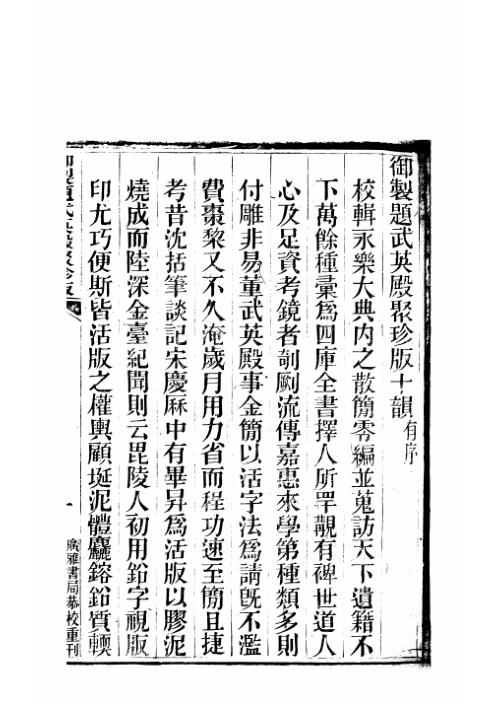 御製題武英殿聚珍版十韻有序
校輯永樂大典内之散簡零編並蒐訪天下遺籍不
下萬餘種彙爲四庫全書擇人所罕覯有裨世道人
心及足資考鏡者剞劂流傳嘉惠來學第種類多則
付雕非易董武英殿事金簡以活字法爲請旣不濫
費棗棃又不久淹歲月用力省而程功速至簡且捷
考昔沈括筆談記宋慶厤中有畢昇爲活版以膠泥
燒成而陸深金臺紀聞則云毘陵人初用鉛字視版
印尤巧便斯皆活版之權輿顧埏泥體麤鎔鉛質輭
御製題武英殿聚珍版
一
廣雅書局恭校重刊